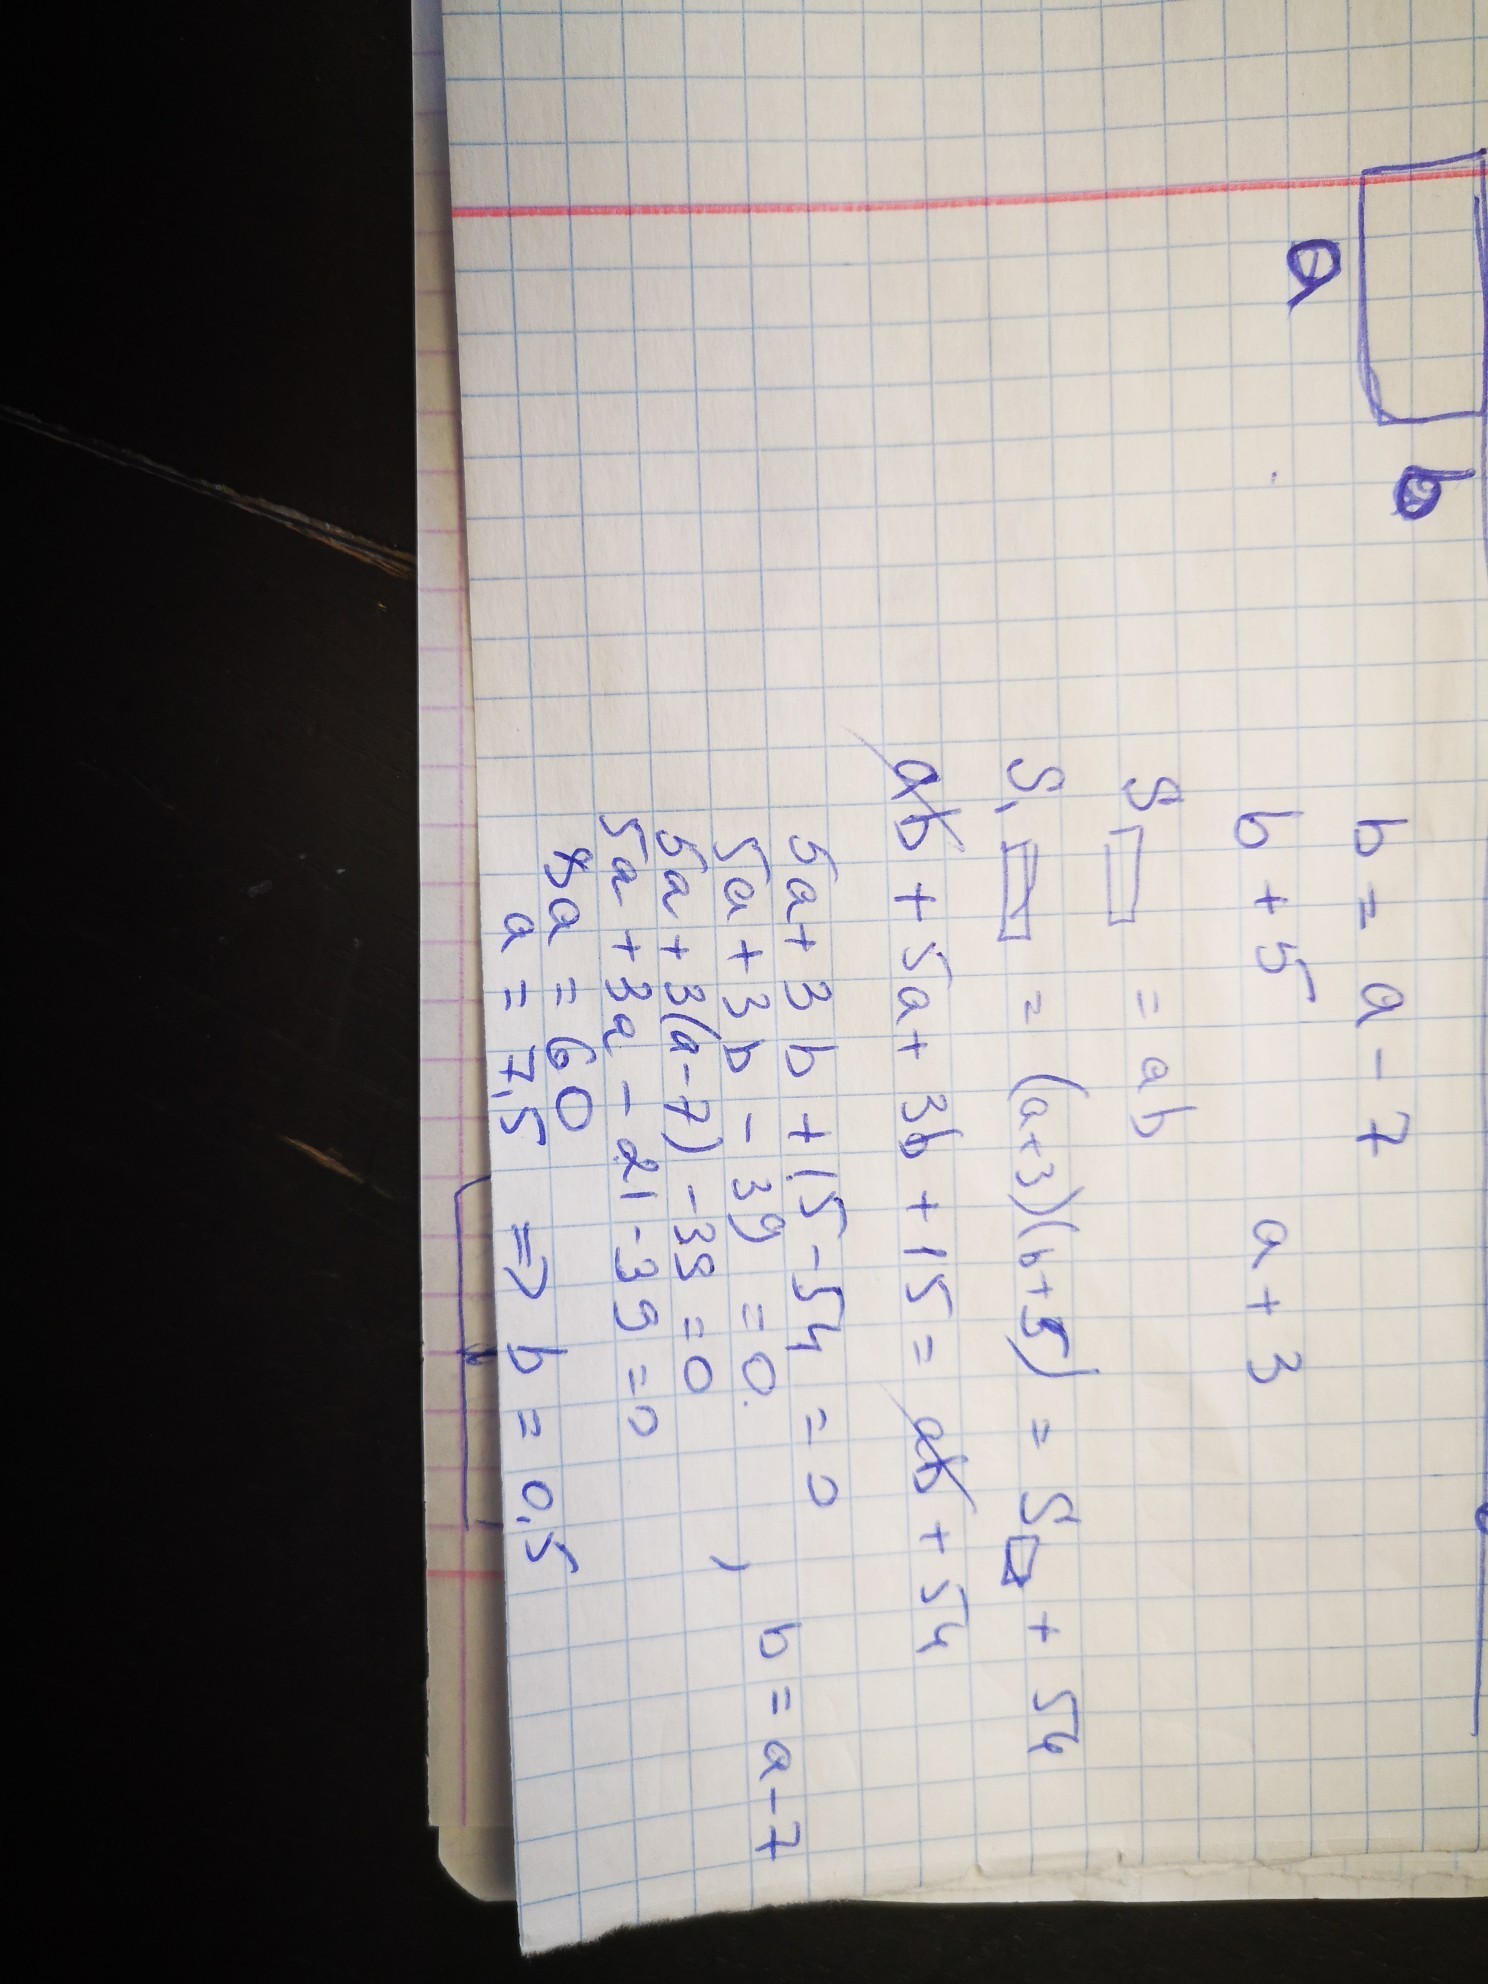 a
b
b = a - 7
b + 5 a + 3
S▭ = ab
S₁▭ = (a+3)(b+5) = S▭ + 54
ab + 5a + 3b + 15 = ab + 54
5a + 3b + 15 - 54 = 0
5a + 3b - 39 = 0, b = a - 7
5a + 3(a-7) - 39 = 0
5a + 3a - 21 - 39 = 0
8a = 60
a = 7,5 ⇒ b = 0,5